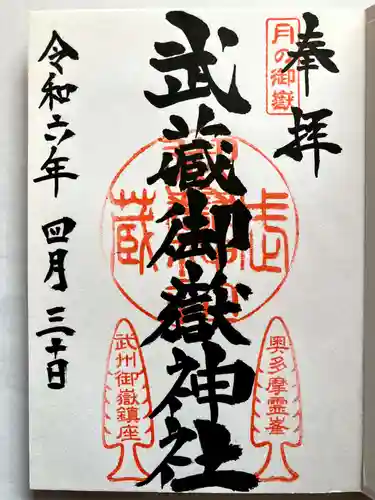 奉拝
月の御嶽
武蔵御嶽神社
武蔵
奥多摩霊峯
武州御嶽鎮座
令和六年 四月 三十日